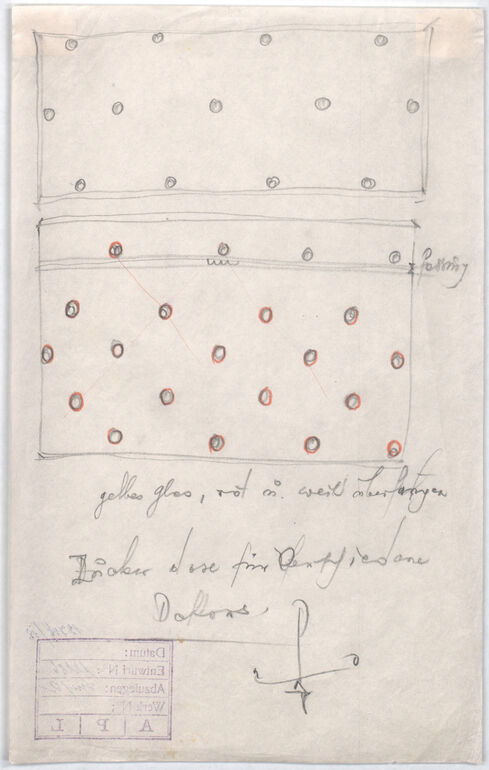 Fassung
gelbes glas, rot u. weiß überfangen
Zucker dose für verschiedene
Dekors
Datum:
Entwurf N°:
Abzulegen:
Werk N°:
A P L